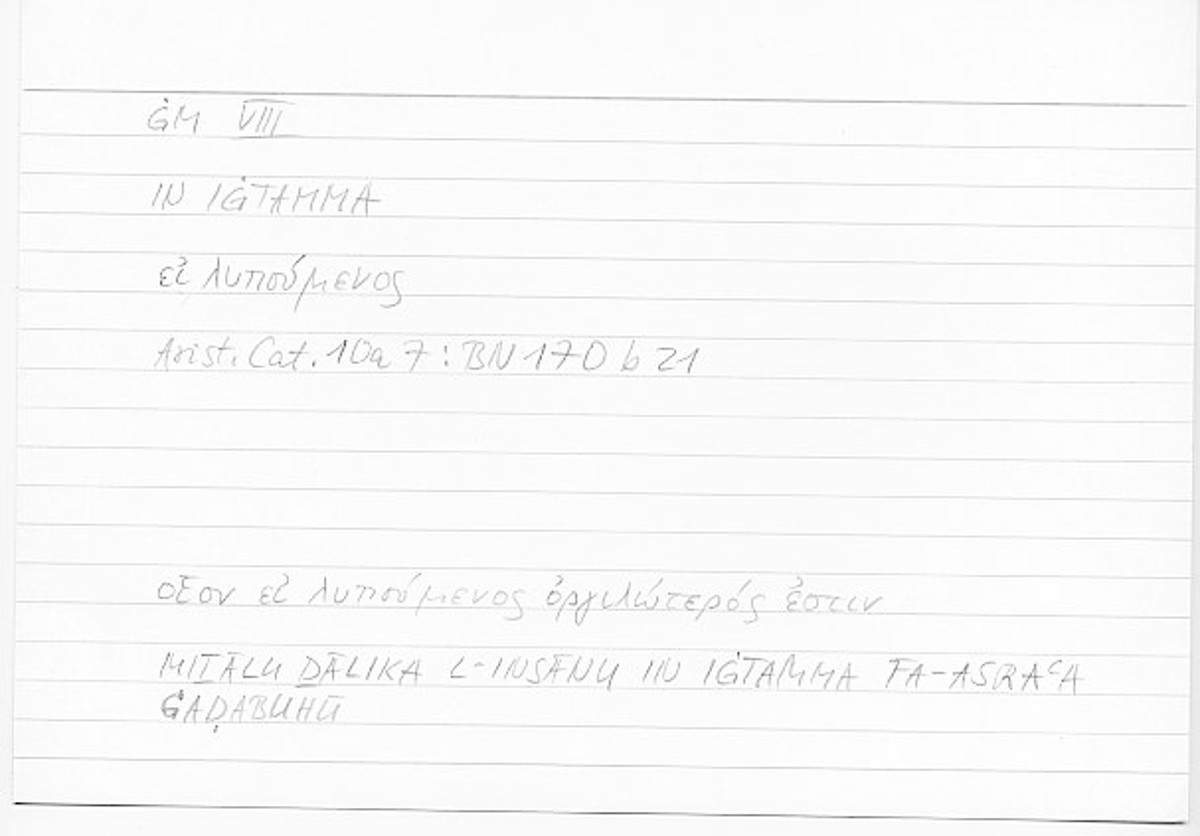 ĠM VIII
IN IĠTAMMA
εἰ λυπούμενος
Arist. Cat. 10a 7 : BN 170 b 21
οἷον εἰ λυπούμενος ὀργιλώτερός ἐστιν
MIṮĀLU ḎĀLIKA L-INSĀNU IN IĠTAMMA FA-ASRAʿA
ĠAḌABUHŪ